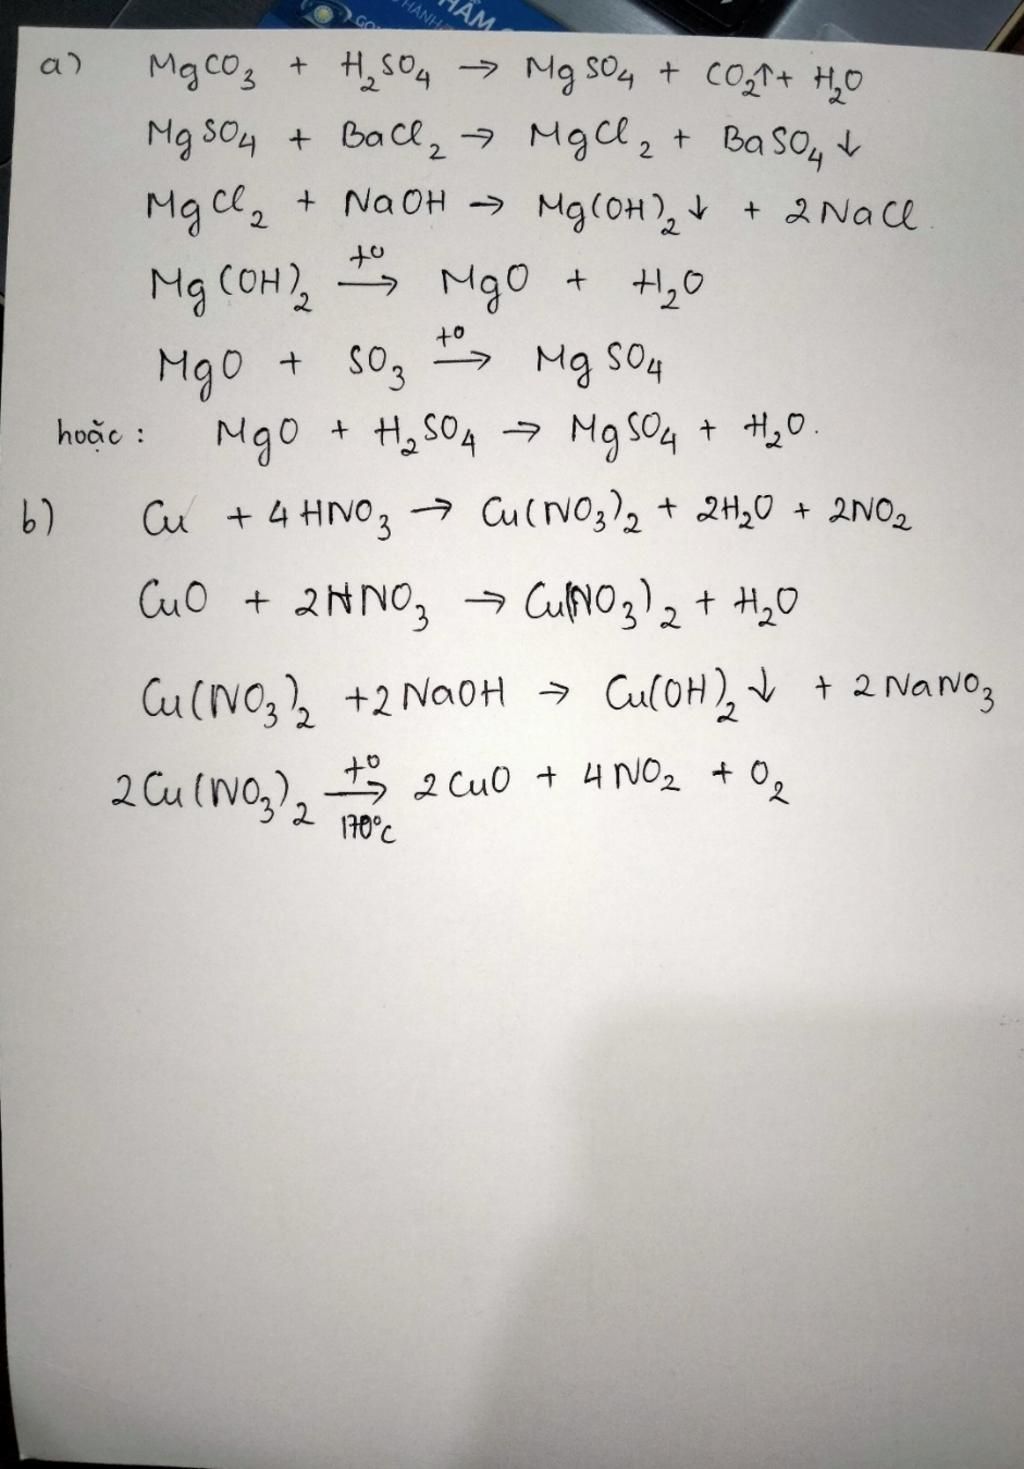 HÀM
HANH
GO
a) MgCO₃ + H₂SO₄ → MgSO₄ + CO₂↑ + H₂O
MgSO₄ + BaCl₂ → MgCl₂ + BaSO₄ ↓
MgCl₂ + NaOH → Mg(OH)₂ ↓ + 2NaCl.
Mg(OH)₂ t⁰→ MgO + H₂O
MgO + SO₃ t⁰→ MgSO₄
hoặc : MgO + H₂SO₄ → MgSO₄ + H₂O.
b) Cu + 4HNO₃ → Cu(NO₃)₂ + 2H₂O + 2NO₂
CuO + 2HNO₃ → Cu(NO₃)₂ + H₂O
Cu(NO₃)₂ + 2NaOH → Cu(OH)₂ ↓ + 2NaNO₃
2Cu(NO₃)₂ t⁰→ 170°C 2CuO + 4NO₂ + O₂